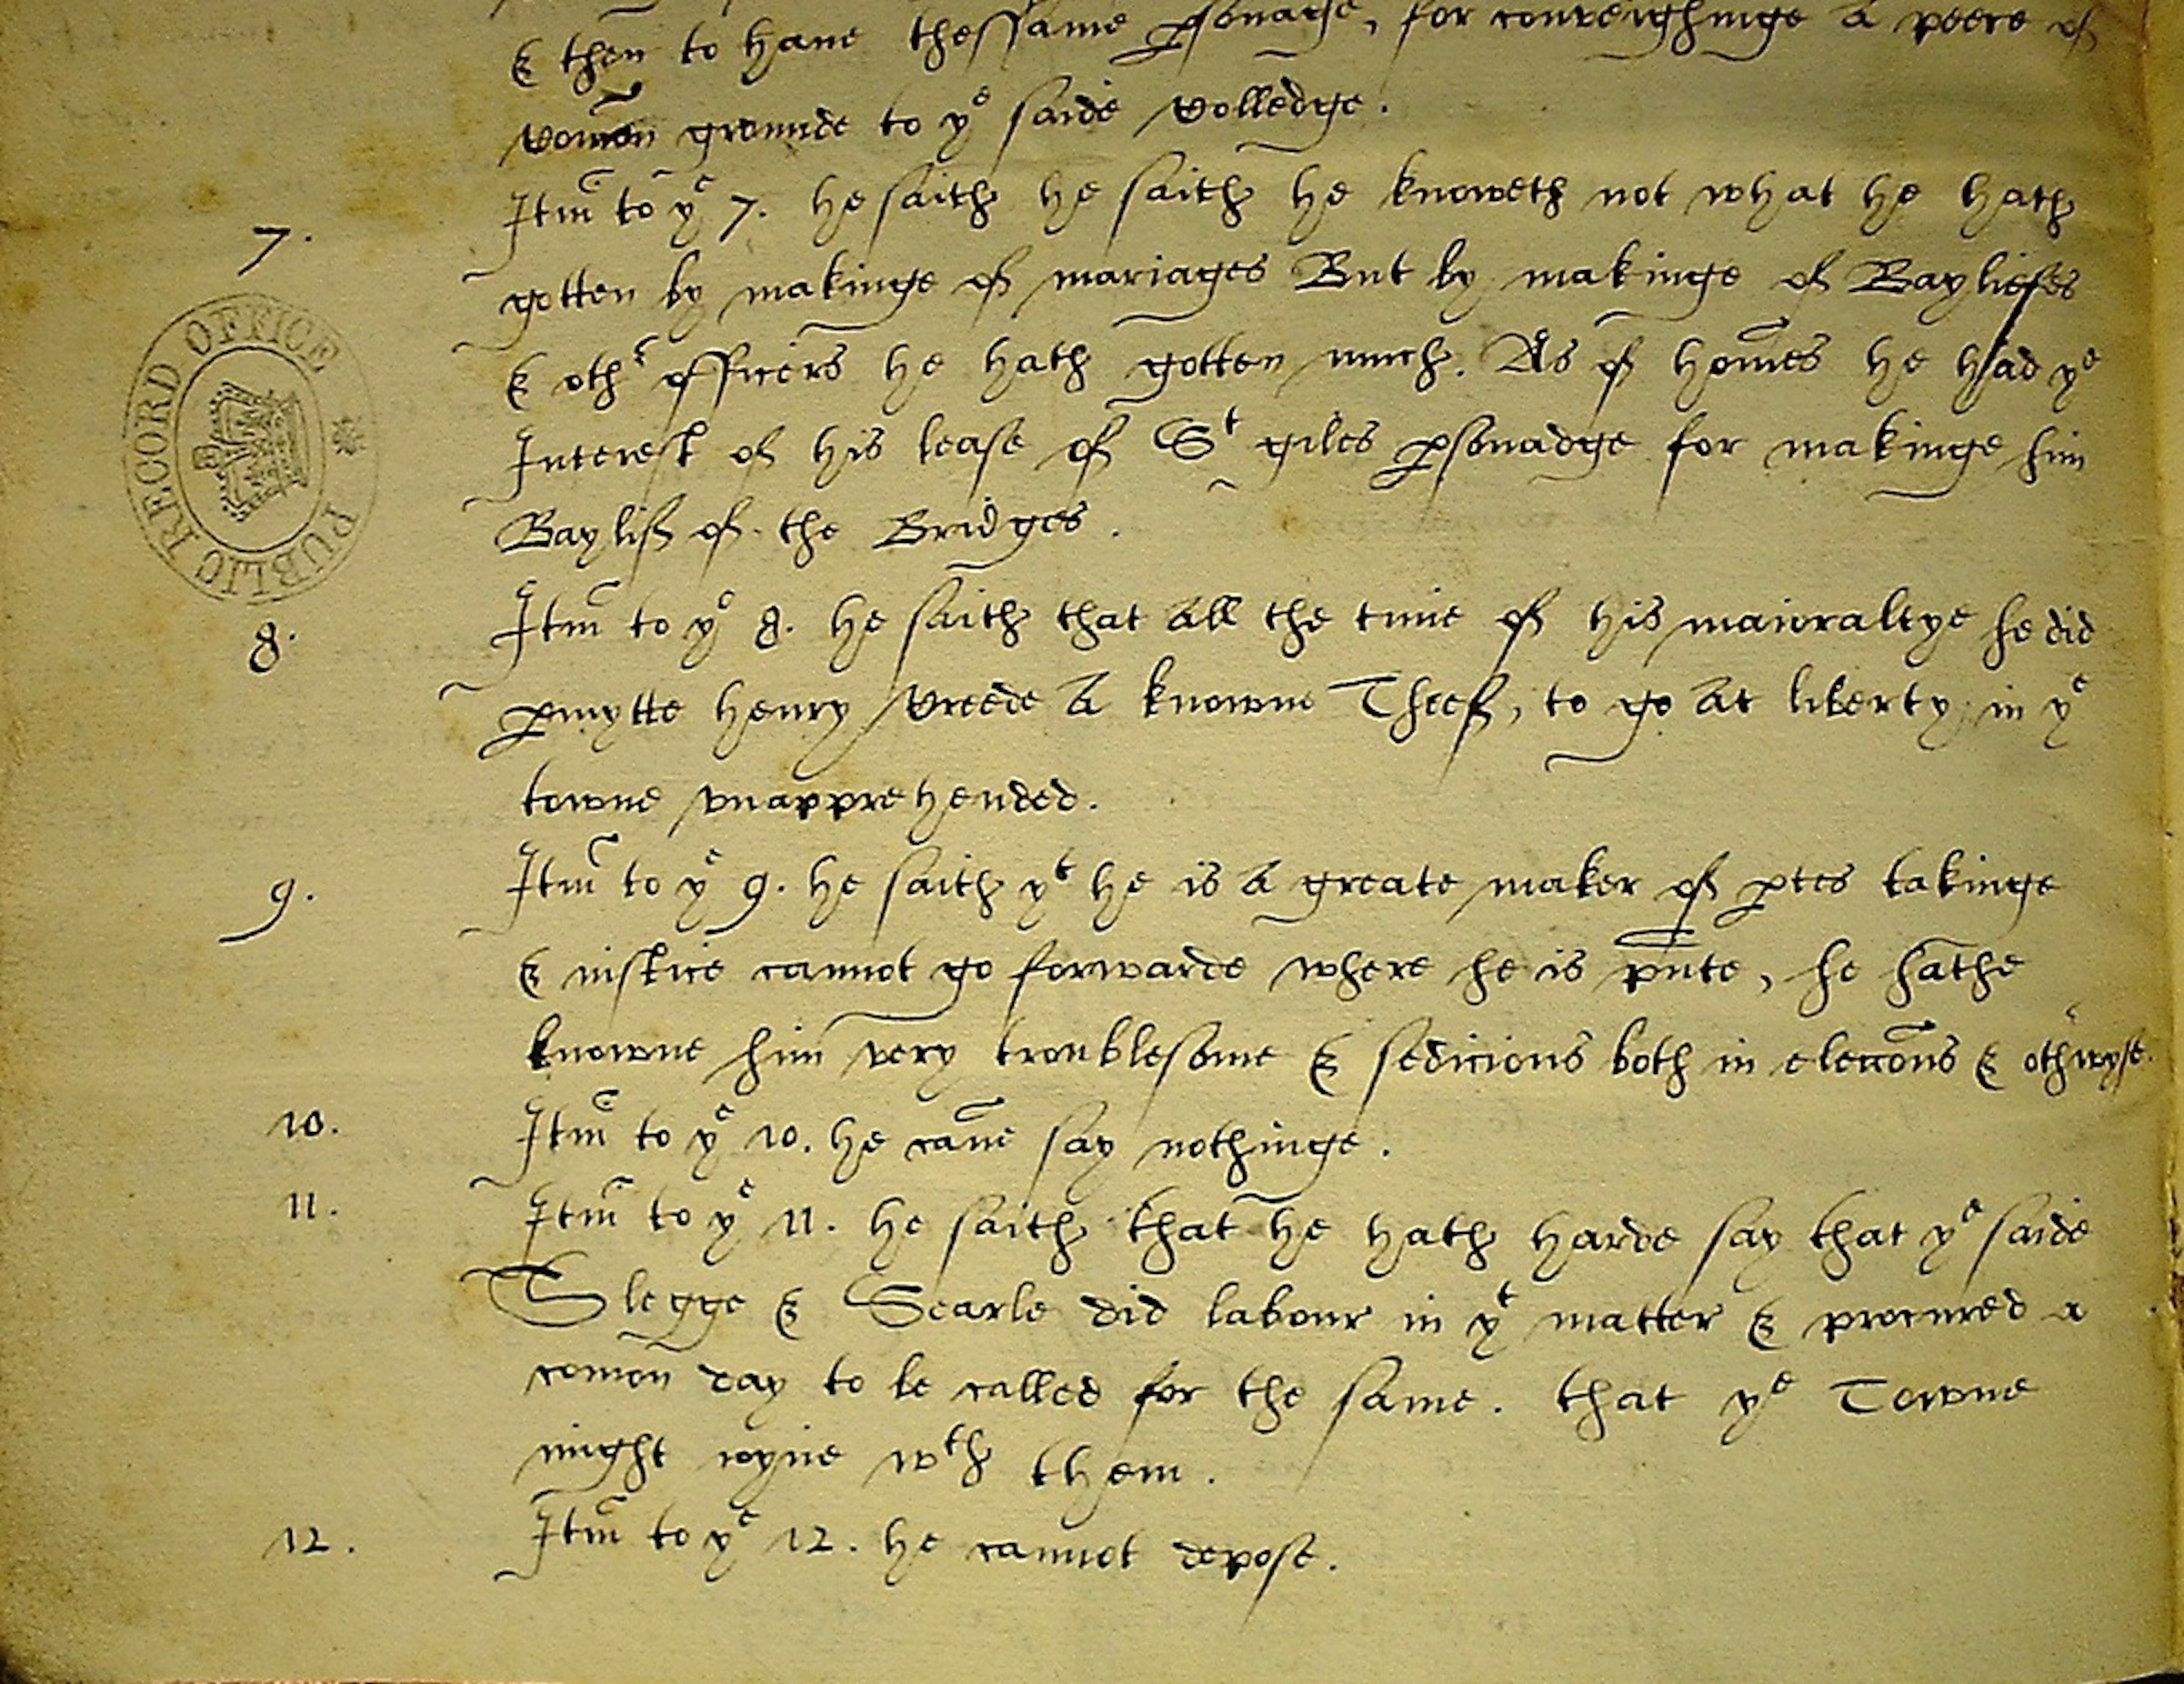 & then to haue thessame psonage, for conveighinge a peece of
Comōn grounde to yᵉ saide Colledge.
7. Itm̄ to yᵉ 7. he saith he saith he knoweth not what he hath
gotten by makinge of mariages But by makinge of Bayliefes
& othʳ officers he hath gotten much. As of hom̄es he had yᵉ
Interest of his lease of Sᵗ giles psonadge for makinge him
Baylif of the Bridges.
PUBLIC RECORD OFFICE
8. Itm̄ to yᵉ 8. he saith that all the time of his maioraltye he did
pmytte henry Creede a knowne Theef, to go at liberty in yᵉ
towne vnapprehended.
9. Itm̄ to yᵉ 9. he saith yᵗ he is a greate maker of ptes takinge
& iustice cannot go forwarde where he is pn̄te, he hathe
knowne him very troublesome & sedicious both in eleccōns & othʳwyse.
10. Itm̄ to yᵉ 10. he can̄e say nothinge.
11. Itm̄ to yᵉ 11. he saith that he hath harde say that yᵉ saide
Slegge & Searle did labour in yᵗ matter & procured a
comon day to be called for the same. that yᵉ Towne
might ioyne wᵗʰ them.
12. Itm̄ to yᵉ 12. he cannot depose.